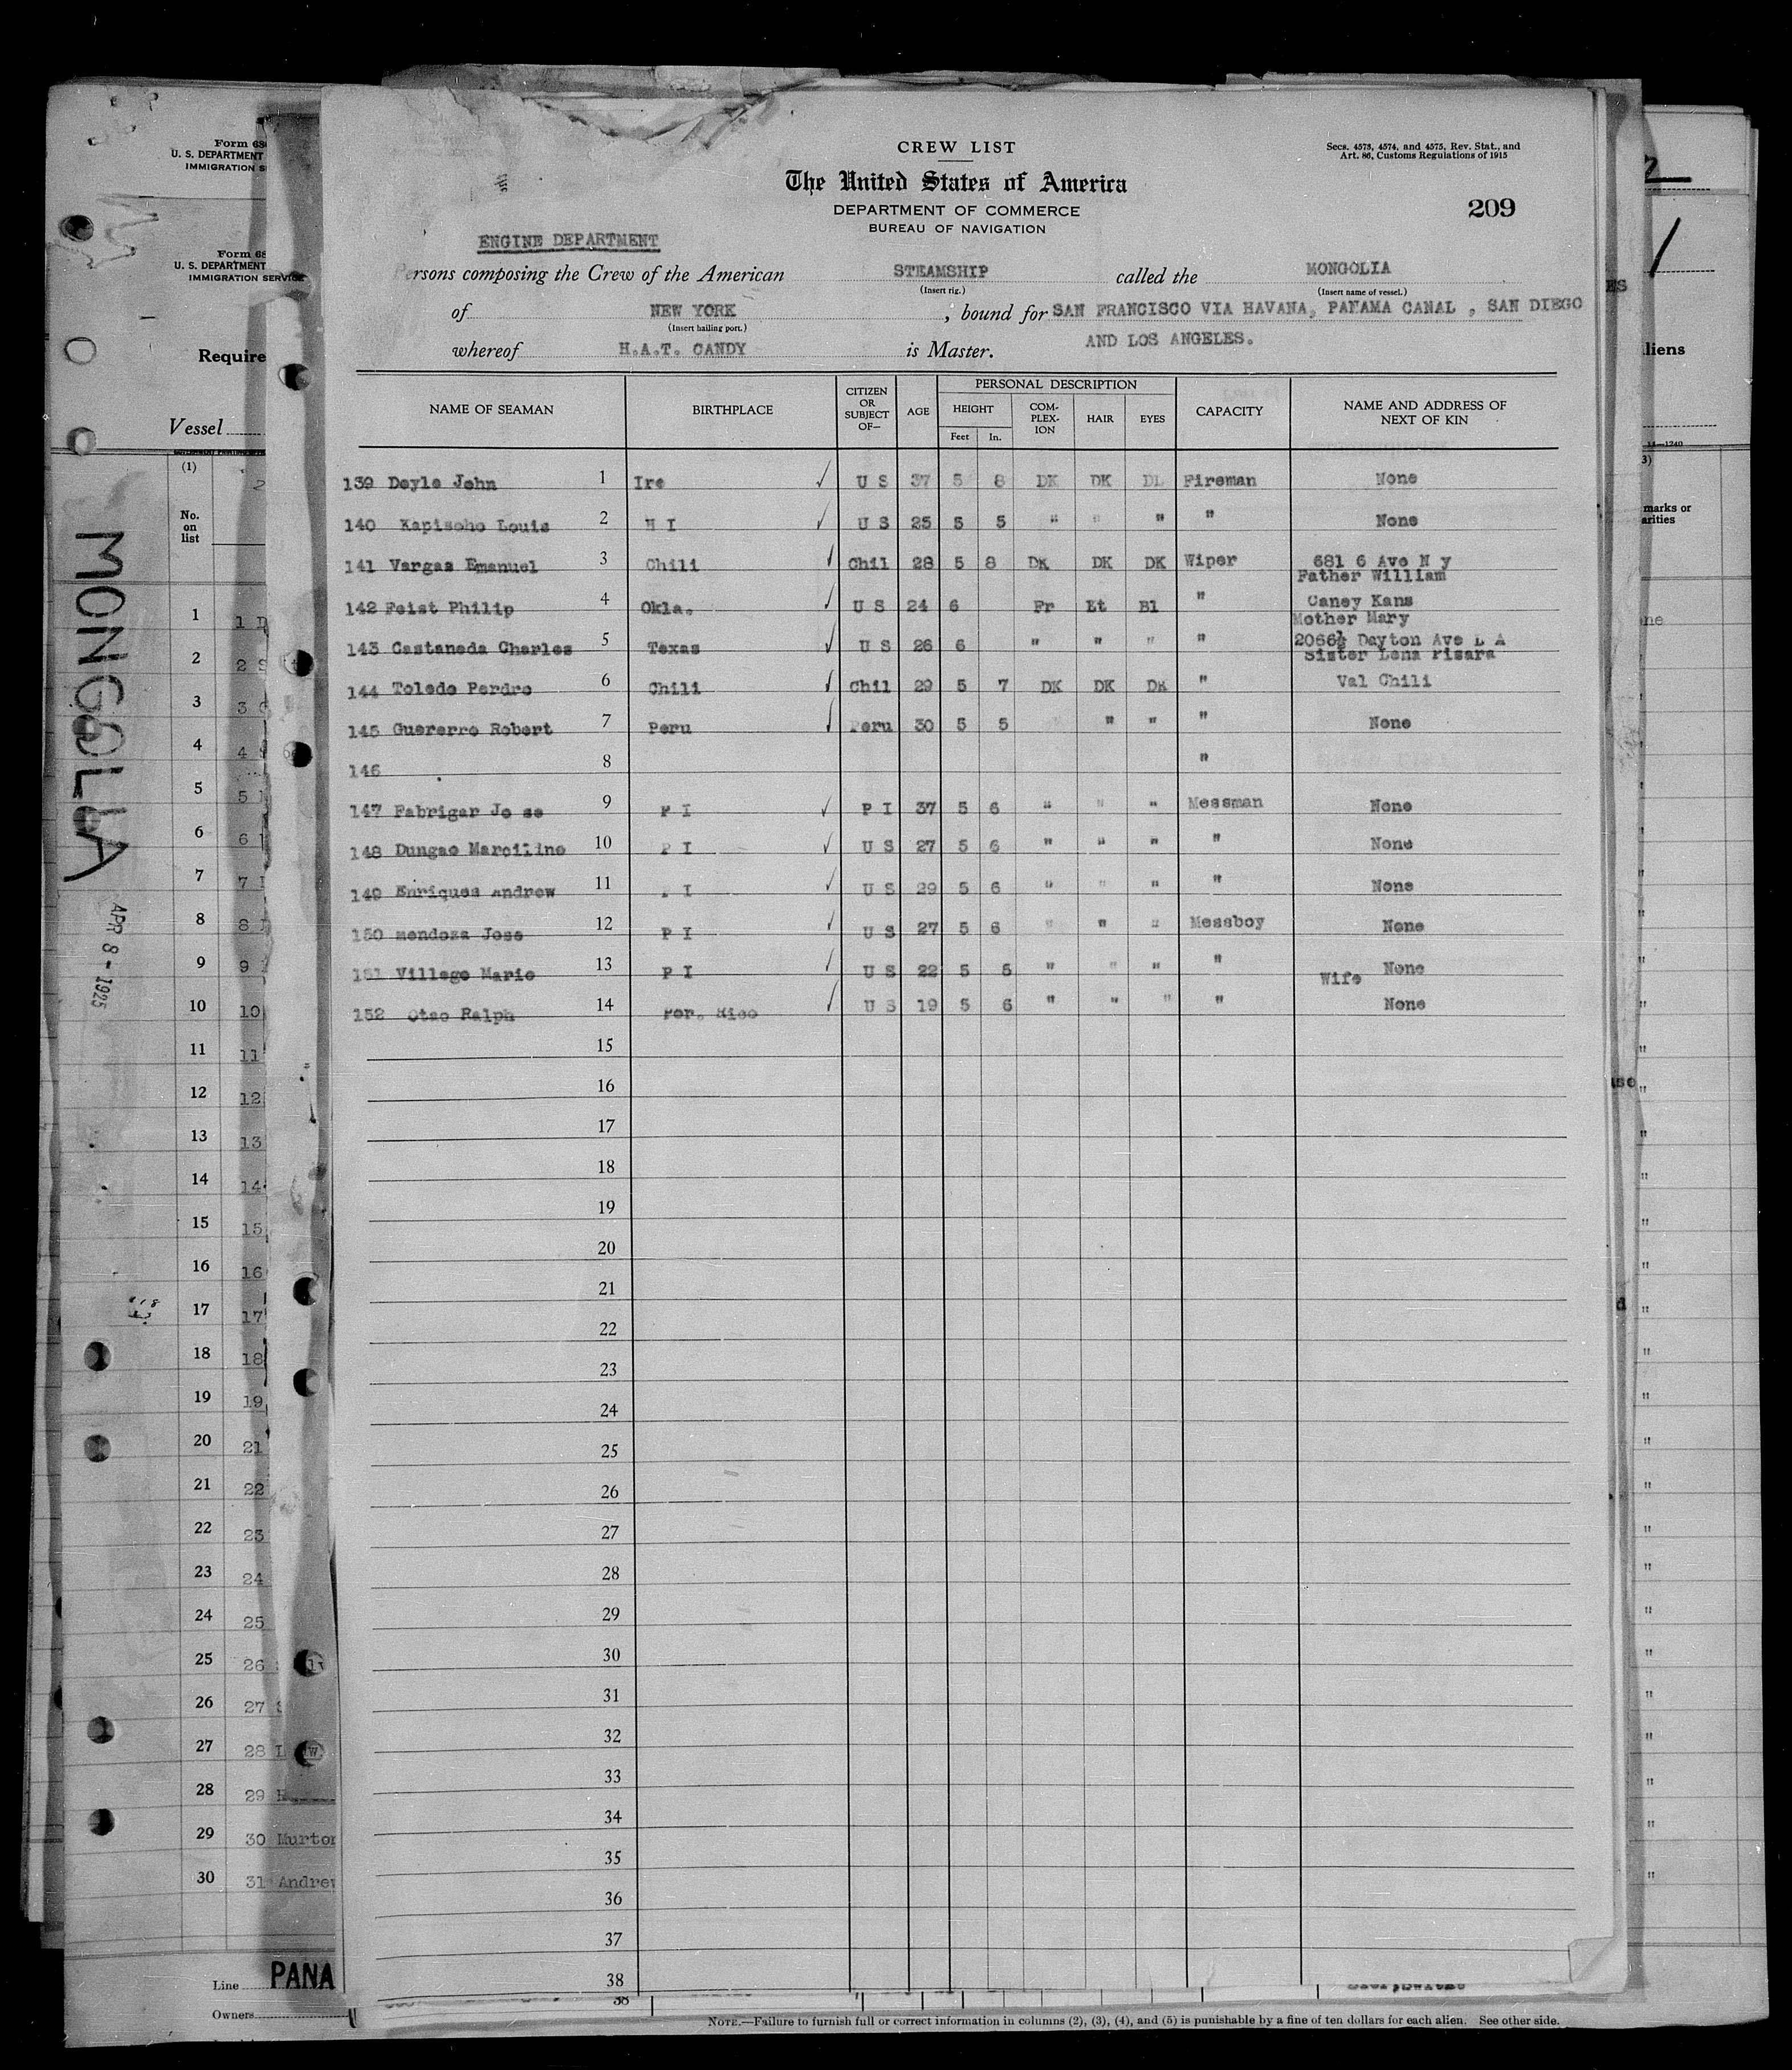 CREW LIST
Secs. 4573, 4574, and 4575, Rev. Stat., and
Art. 86, Customs Regulations of 1915
The United States of America
DEPARTMENT OF COMMERCE
BUREAU OF NAVIGATION
209
ENGINE DEPARTMENT
Persons composing the Crew of the American STEAMSHIP called the MONGOLIA
(Insert rig.) (Insert name of vessel.)
of NEW YORK, bound for SAN FRANCISCO VIA HAVANA, PANAMA CANAL , SAN DIEGO
(Insert hailing port.)
whereof H.A.T. CANDY is Master. AND LOS ANGELES.
NAME OF SEAMAN BIRTHPLACE CITIZEN OR SUBJECT OF— AGE PERSONAL DESCRIPTION CAPACITY NAME AND ADDRESS OF NEXT OF KIN
HEIGHT COM-PLEX-ION HAIR EYES
Feet In.
139 Doyle John 1 Ire ✓ U S 37 5 8 DK DK DL Fireman None
140 Kapisoho Louis 2 H I ✓ U S 25 5 5 " " " " None
141 Vargas Emanuel 3 Chili ✓ Chil 28 5 8 DK DK DK Wiper 681 6 Ave N y
Father William
142 Feist Philip 4 Okla. ✓ U S 24 6 Fr Lt Bl " Caney Kans
Mother Mary
143 Castaneda Charles 5 Texas ✓ U S 26 6 " " " " 2066½ Dayton Ave L A
Sister Lena Pisara
144 Toledo Perdro 6 Chili ✓ Chil 29 5 7 DK DK DK " Val Chili
145 Guererro Robert 7 Peru ✓ Peru 30 5 5 " " " None
146 8 "
147 Fabrigar Jo se 9 P I ✓ P I 37 5 6 " " " Messman None
148 Dungao Marcilino 10 P I ✓ U S 27 5 6 " " " " None
149 Enriques Andrew 11 P I ✓ U S 29 5 6 " " " " None
150 mendoza Jose 12 P I ✓ U S 27 5 6 " " " Messboy None
151 Villego Mario 13 P I ✓ U S 22 5 5 " " " " None
Wife
152 Otao Ralph 14 Por. Rico ✓ U S 19 5 6 " " " " None
15
16
17
18
19
20
21
22
23
24
25
26
27
28
29
30
31
32
33
34
35
36
37
38
38
NOTE.—Failure to furnish full or correct information in columns (2), (3), (4), and (5) is punishable by a fine of ten dollars for each alien. See other side.
Form 68
U. S. DEPARTMENT
IMMIGRATION S
Form 68
U. S. DEPARTMENT
IMMIGRATION SERVICE
Require
Vessel
(1)
No.
on
list
MONGOLIA
APR 8 - 1925
1 1
2 2
3 3
4 4
5 5
6 6
7 7
8 8
9 9
10 10
11 11
12 12
13 13
14 14
15 15
16 16
17 17
18 18
19 19
20 21
21 22
22 23
23 24
24 25
25 26
26 27
27 28
28 29
29 30 Murton
30 31 Andrew
Line PANA
Owners
liens
14—1240
marks or
arities